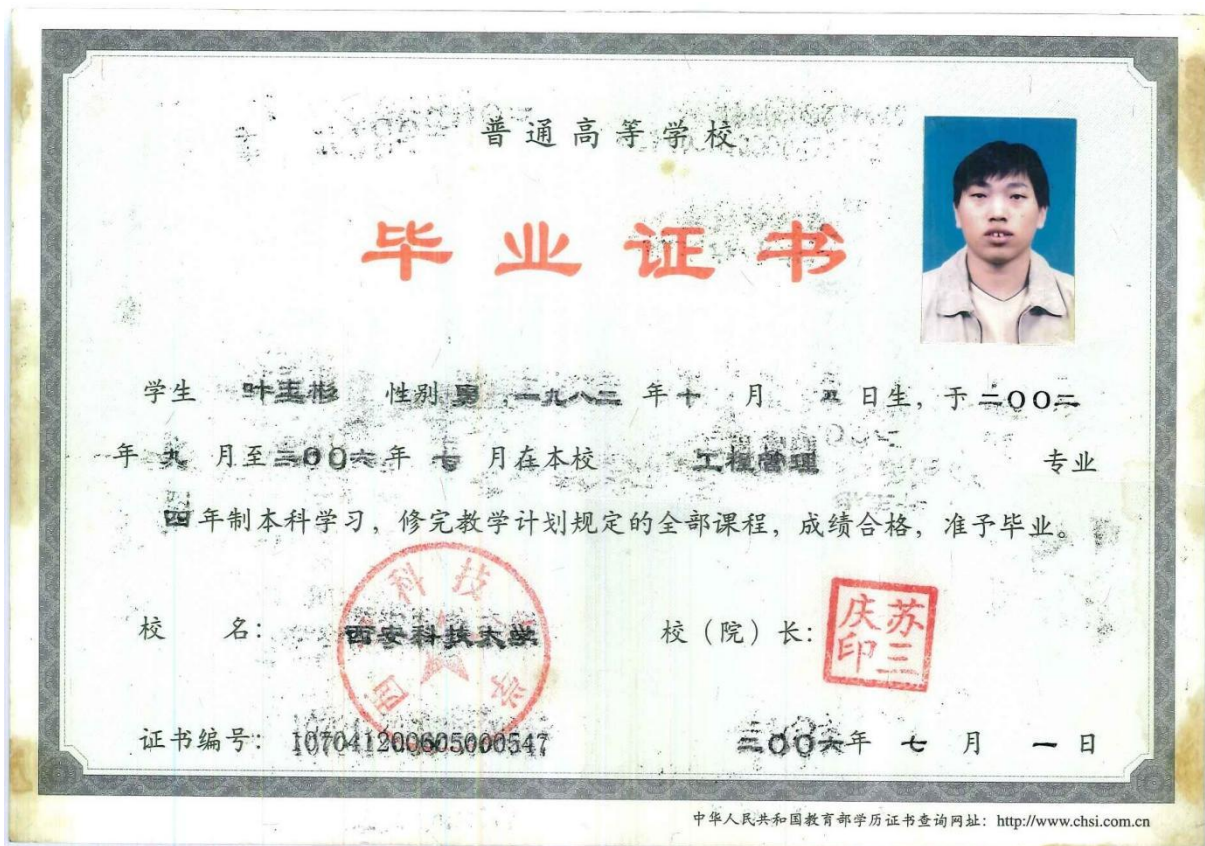 普通高等学校
毕业证书
学生 叶玉彬 性别 男,一九八二年十月 五日生,于二〇〇二
年九月至二〇〇六年七月在本校 工程管理 专业
四年制本科学习,修完教学计划规定的全部课程,成绩合格,准予毕业。
校 名: 西安科技大学 校(院)长: 苏三庆印
西安科技大学
证书编号: 107041200605000547 二〇〇六年七月一日
中华人民共和国教育部学历证书查询网址: http://www.chsi.com.cn